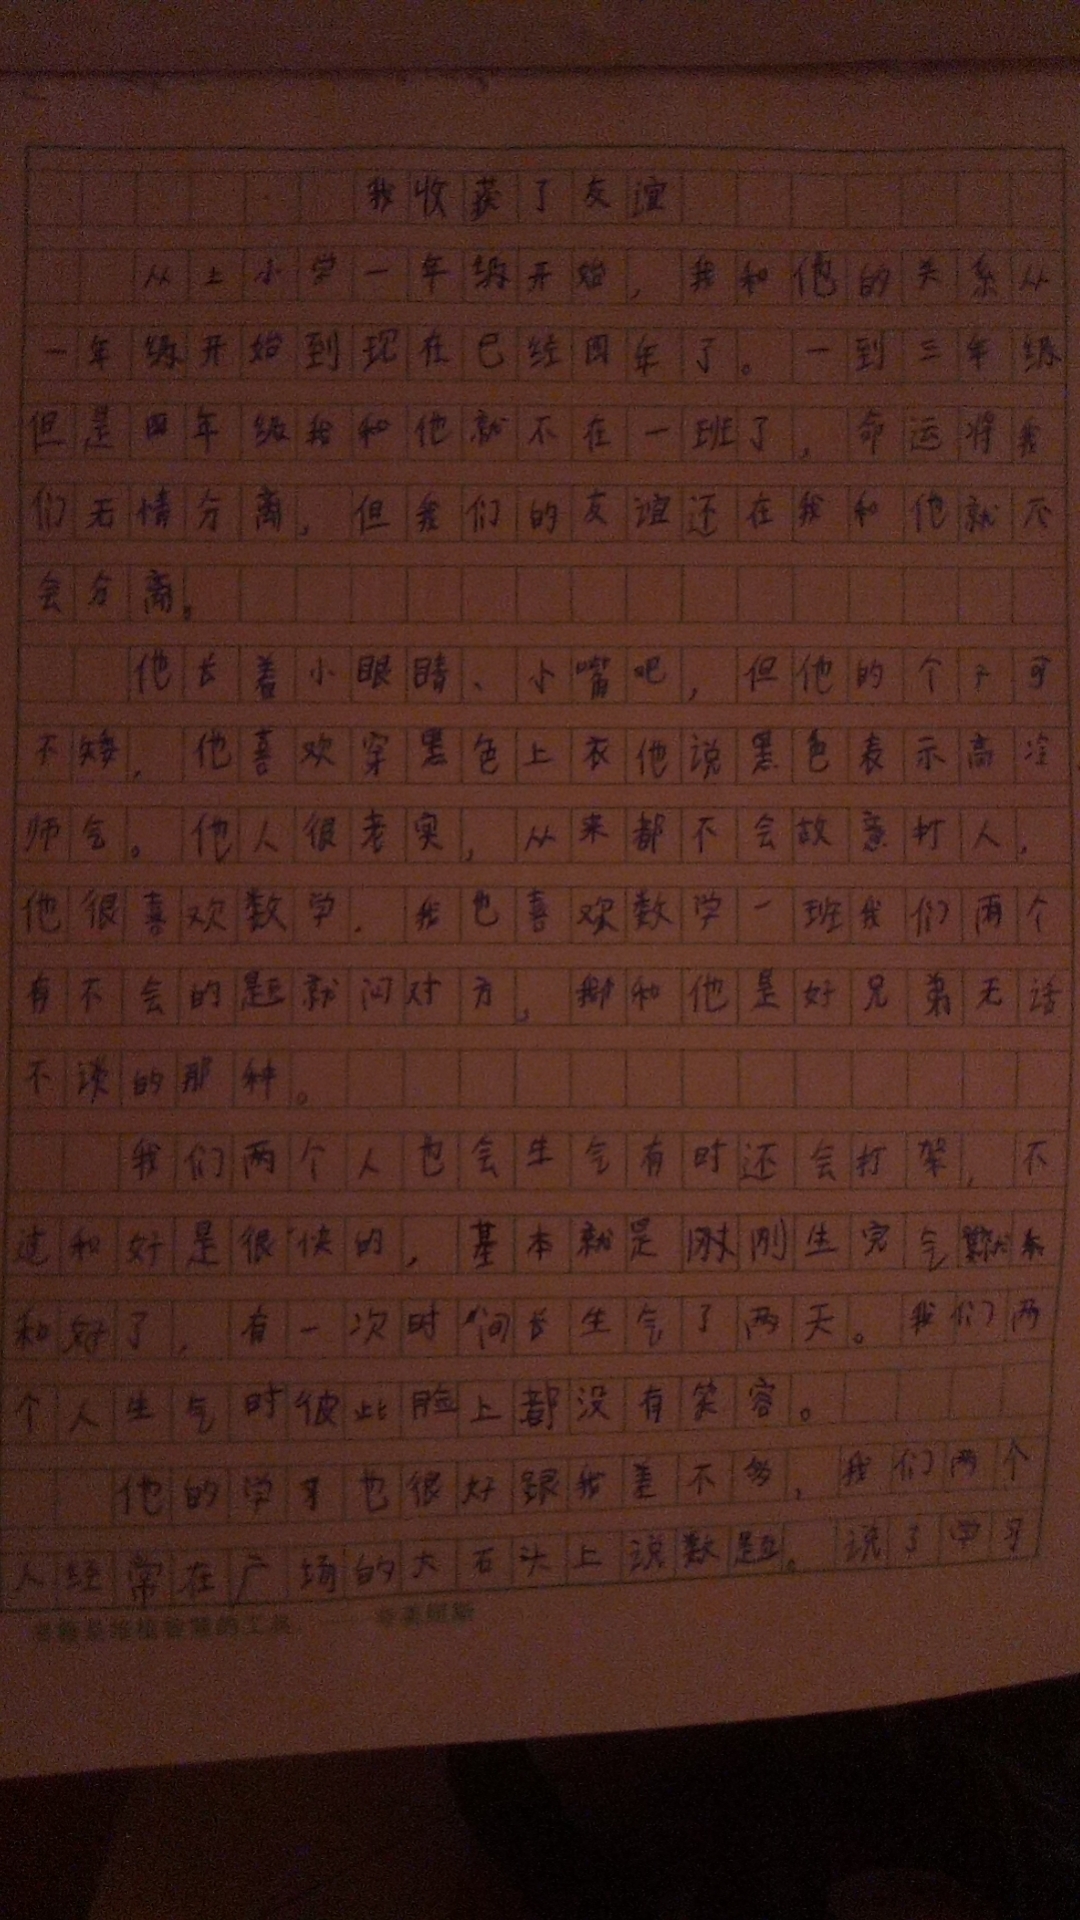 我收获了友谊
从上小学一年级开始，我和他的关系从
一年级开始到现在已经四年了。一到三年级
但是四年级我和他就不在一班了，命运将我
们无情分离，但我们的友谊还在我和他就不
会分离。
他长着小眼睛、小嘴吧，但他的个子可
不矮，他喜欢穿黑色上衣他说黑色表示高冷
师气。他人很老实，从来都不会故意打人，
他很喜欢数学，我也喜欢数学一班我们两个
有不会的题就问对方，和他是好兄弟无话
不谈的那种。
我们两个人也会生气有时还会打架，不
过和好是很快的，基本就是刚刚生完气就
和好了，有一次时间长生气了两天。我们两
个人生气时彼此脸上都没有笑容。
他的学习也很好跟我差不多，我们两个
人经常在广场的大石头上说数题。说了学习